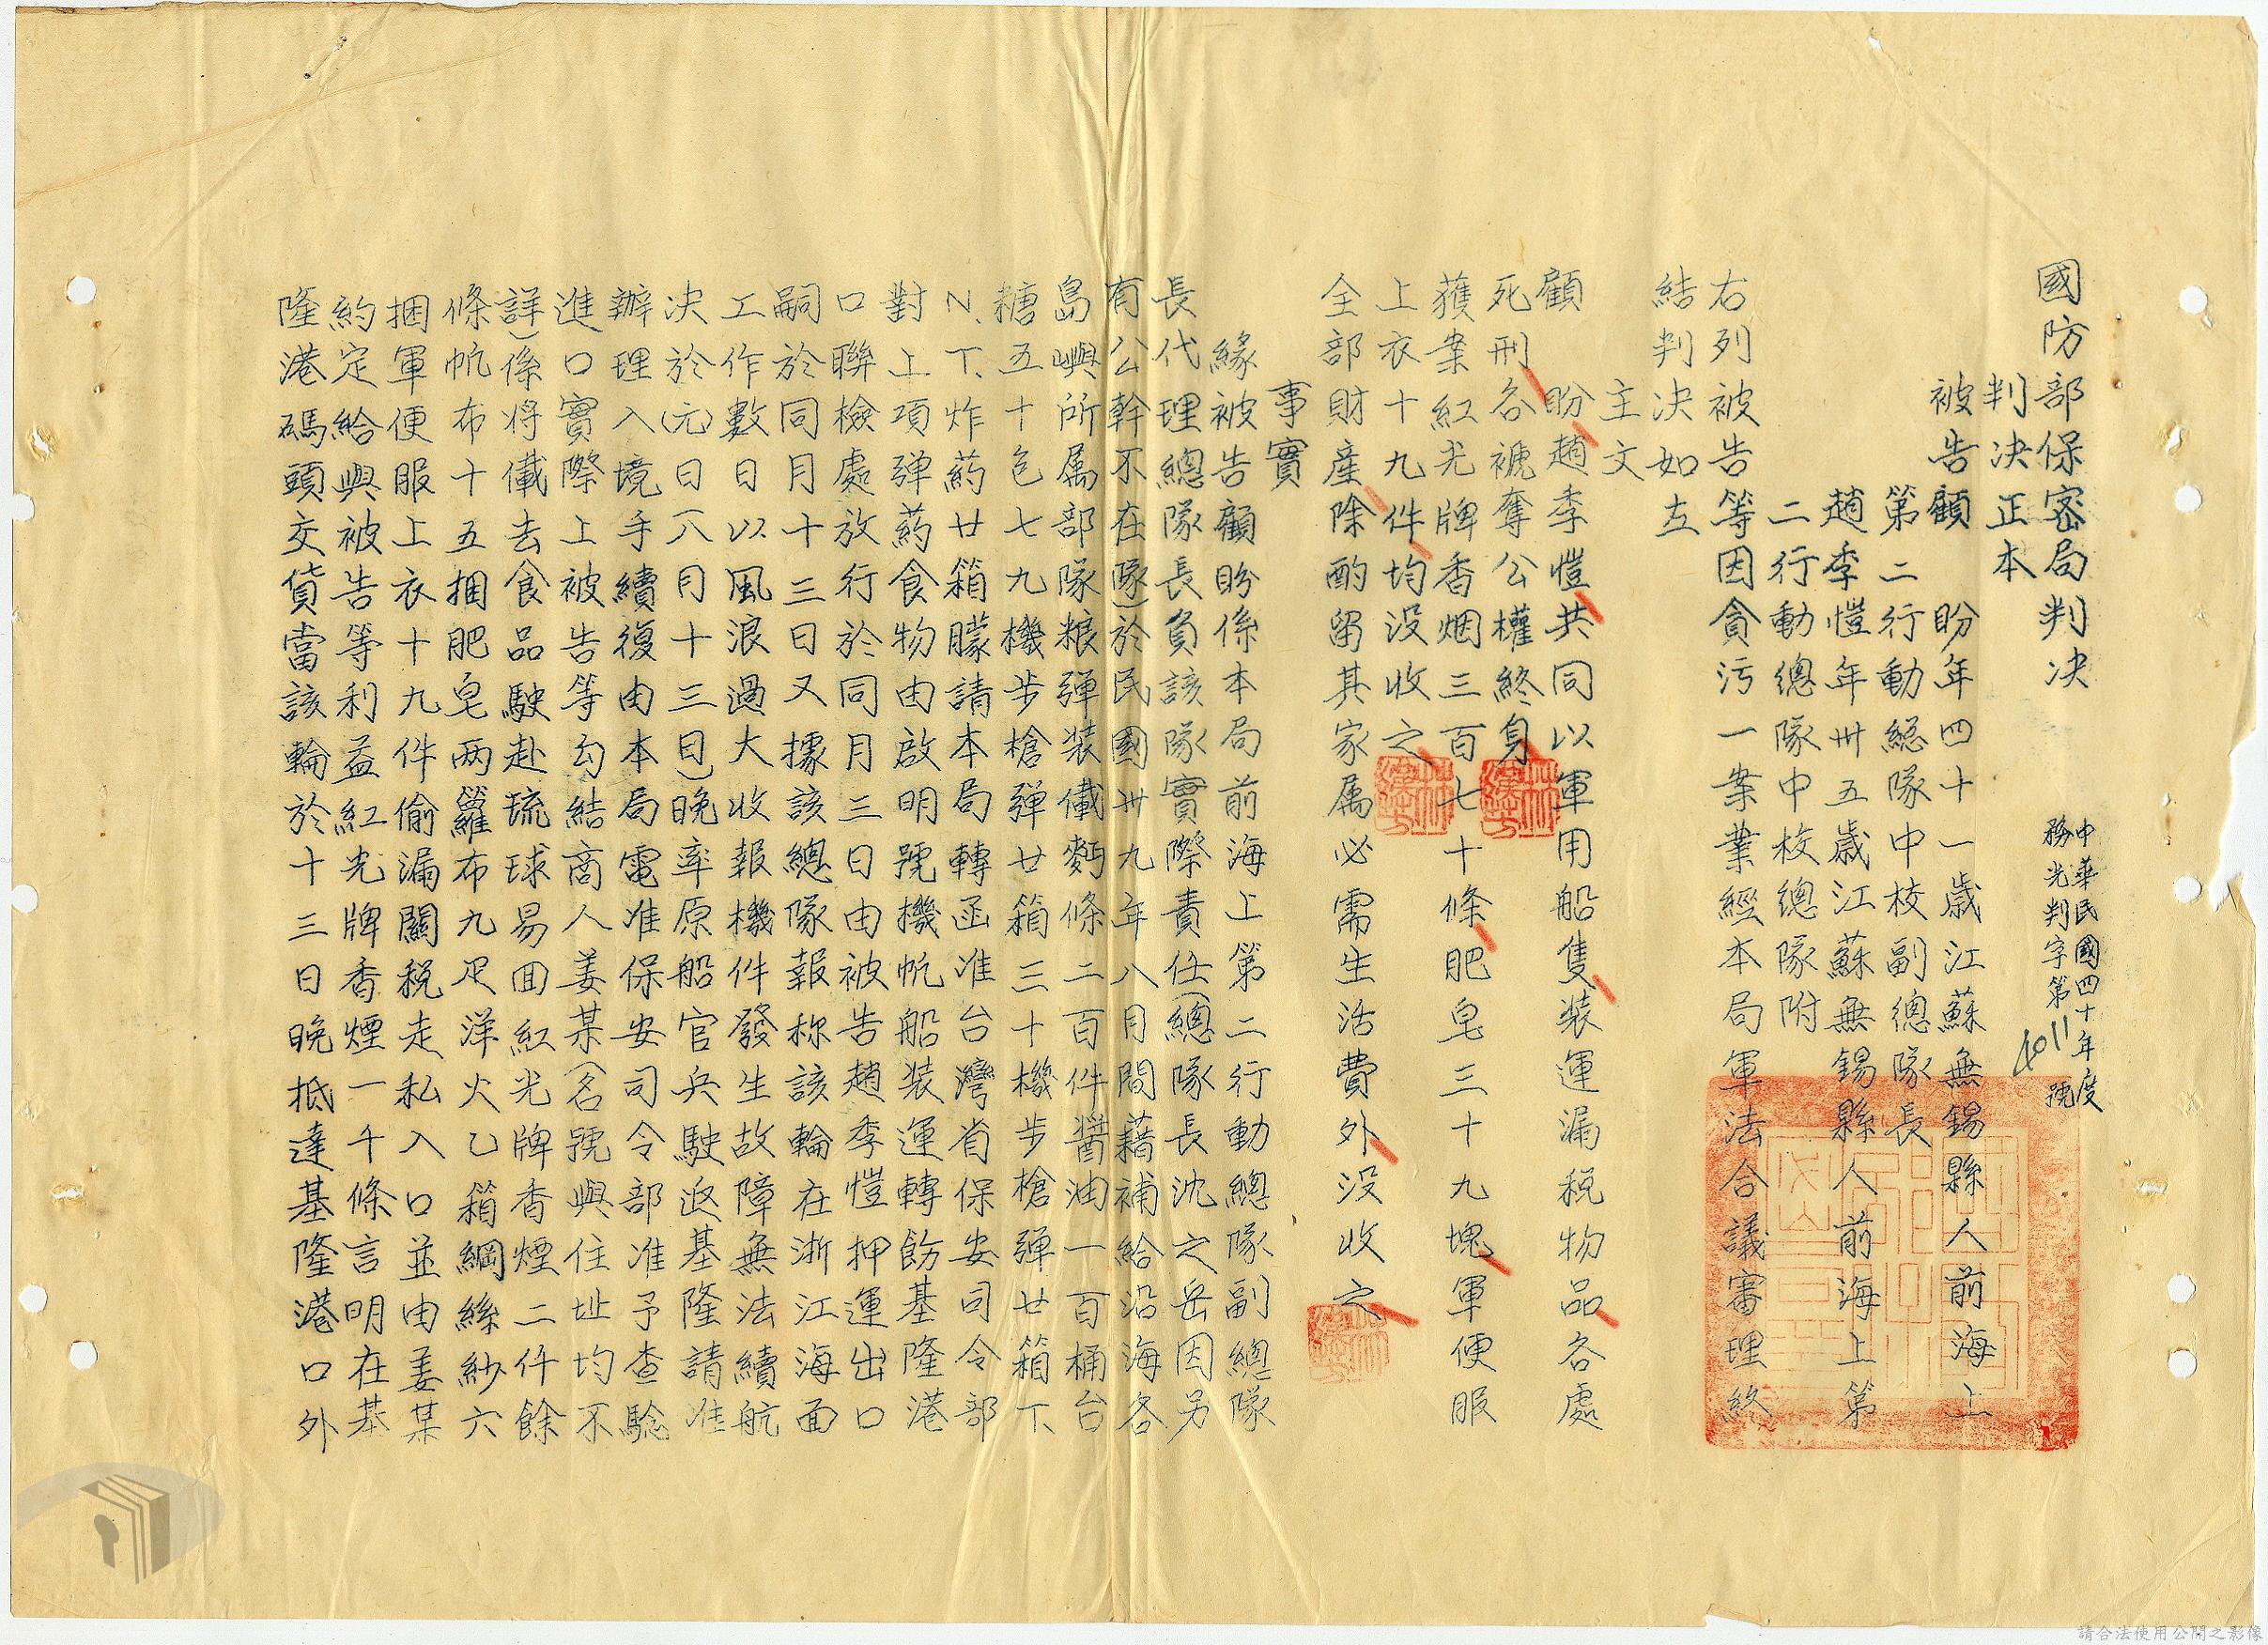 國防部保密局判决
中華民國四十年度
務光判字第4011號
判决正本
被告顧　盼年四十一歲江蘇無錫縣人前海上
第二行動總隊中校副總隊長
趙季愷年卅五歲江蘇無錫縣人前海上第
二行動總隊中校總隊附
右列被告等因貪污一案業經本局軍法合議審理終
結判决如左
主文
顧　盼趙季愷共同以軍用船隻裝運漏稅物品各處
死刑各褫奪公權終身
獲案紅光牌香烟三百七十條肥皂三十九塊軍便服
上衣十九件均没收之
全部財產除酌留其家属必需生活費外没收之
事實
緣被告顧盼係本局前海上第二行動總隊副總隊
長代理總隊長負該隊實際責任(總隊長沈之岳因另
有公幹不在隊)於民國卅九年八月間藉補給沿海各
島嶼所属部隊粮彈裝儎麪條二百件醬油一百桶台
糖五十包七九機步槍彈廿箱三十機步槍彈廿箱T.
N.T.炸葯廿箱朦請本局轉函准台灣省保安司令部
對上項彈葯食物由啟明號機帆船裝運轉飭基隆港
口聯檢處放行於同月三日由被告趙季愷押運出口
嗣於同月十三日又據該總隊報称該輪在浙江海面
工作數日以風浪過大收報機件發生故障無法續航
决於(元)日(八月十三日)晚率原船官兵駛返基隆請准
辦理入境手續復由本局電准保安司令部准予查驗
進口實際上被告等勾結商人姜某(名號與住址均不
詳)係將儎去食品駛赴琉球易回紅光牌香煙二仟餘
條帆布十五捆肥皂两籮布九疋洋火乙箱綢絲紗六
捆軍便服上衣十九件偷漏關税走私入口並由姜某
約定給與被告等利益紅光牌香煙一千條言明在基
隆港碼頭交貨當該輪於十三日晚抵達基隆港口外
請合法使用公開之影像